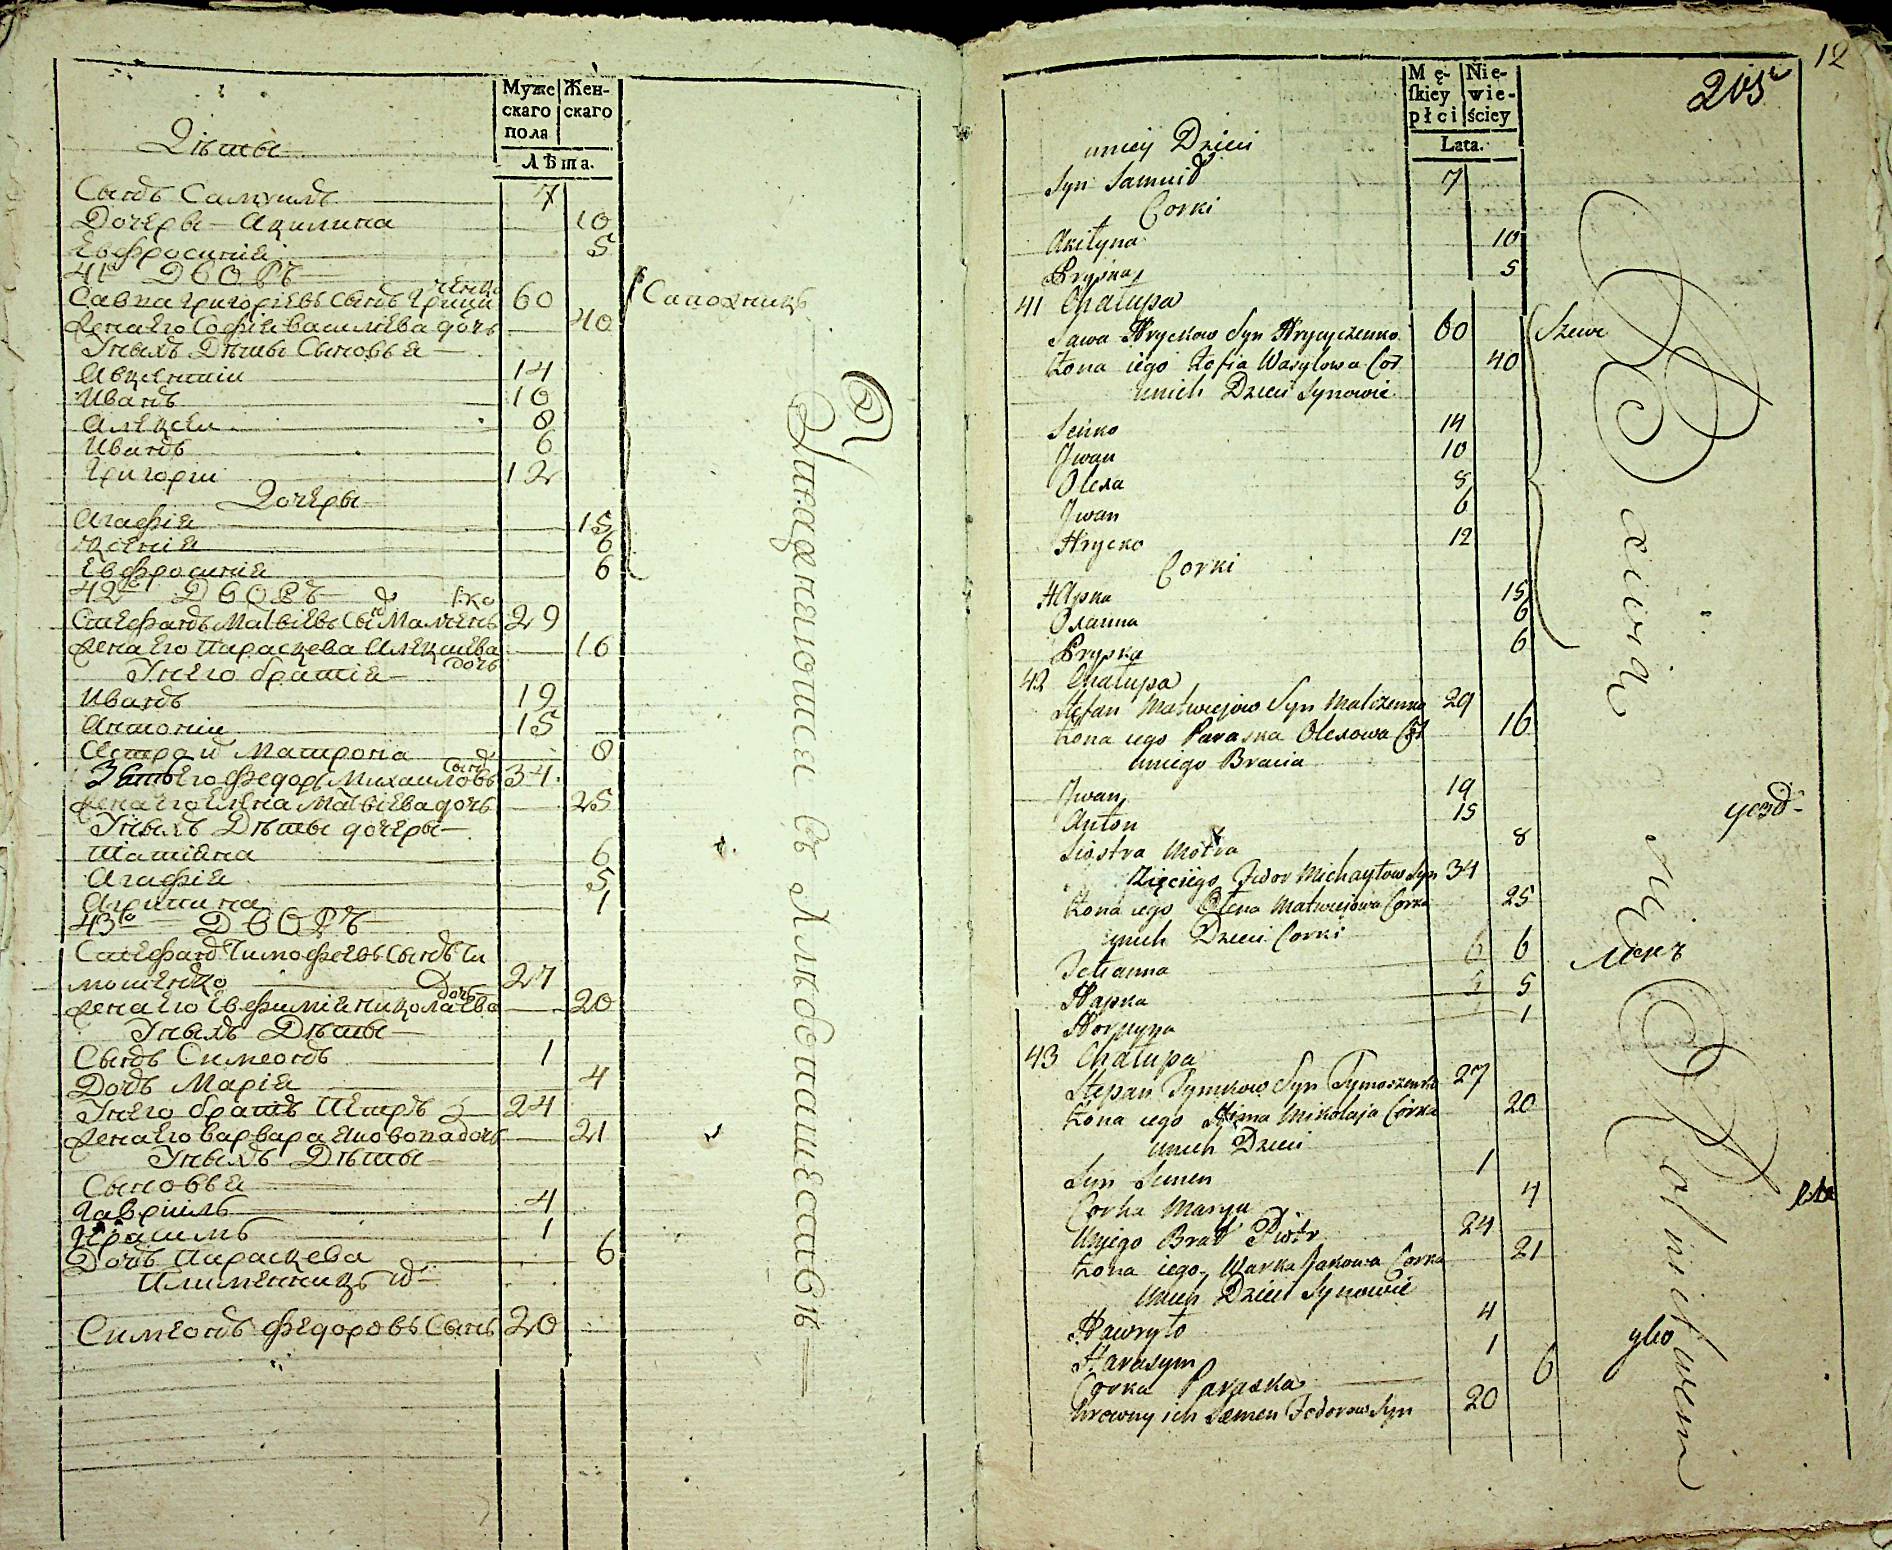 Муже
скаго
пола
Жен-
скаго
Лѣта.
Дѣти
Сынъ Самуилъ 7
Дочери Акилина 10
Евфросинія 5
41й Дворъ
Савка Григоріевъ сынъ Грици
ченко 60
жена его Софія Василіева дочь 40
Сапожникъ
У нихъ дѣти сыновья
Авксентии 14
Иванъ 10
Алексеи 8
Иванъ 6
Григории 12
Дочери
Агафія 15
Ксенія 6
Евфросинія 6
42й Дворъ
Стефанъ Матвіевъ сынъ Малченко 29
жена его Параскева Алексіева дочь 16
У него братія
Иванъ 19
Антонии 15
Сестра и Матрона 8
Зять его Федоръ Михаиловъ сынъ 34
жена его Елена Матвіева дочь 25
У нихъ дѣти дочери
Татіана 6
Агафія 5
Агрипина 1
43й Дворъ
Стефанъ Тимофеевъ сынъ Ти
мошенко 27
жена его Евфимія Николаева дочь 20
У нихъ дѣти
Сынъ Симеонъ 1
Дочь Марія 4
У него братъ Петръ 24
жена его Варвара Яковова дочь 21
У нихъ дѣти
Сыновья
Гавріилъ 4
Герасимъ 1
Дочь Параскева 6
Племенникъ их
Симеонъ Федоровъ сынъ 20
12
205
Mę-
ſkiey
płci
Nie-
wie-
ściey
Lata.
u niey Dzieci
Syn Samuił 7
Corki
Akiłyna 10
Pryśka 5
41 Chałupa
Sawa Hryckow Syn Hrycyczenko 60
Żona iego Zofia Wasylowa Cor 40
Szewc
u nich Dzieci Synowie
Seńko 14
Jwan 10
Olexa 8
Jwan 6
Hrycko 12
Corki
Hapka 15
Oxanna 6
Pryśka 6
42 Chałupa
Stefan Matwiejow Syn Malczenko 29
Żona iego Paraska Olexowa Cor 16
u niego Bracia
Jwan 19
Anton 15
Siostra Motra 8
Zięć iego Fedor Michayłow Syn 34
Żona iego Olena Matwiejowa Corka 25
u nich Dzieci Corki
Tetianna 6
Hapka 5
Horpyna 1
43 Chałupa
Stepan Tymkow Syn Tymoszenko 27
Żona iego Jima Mikołaja Corka 20
u nich Dzieci
Syn Semen 1
Corka Marya 4
U niego Brat Piotr 24
Żona iego Warka Jakowa Corka 21
u nich Dzieci Synowie
Hawryło 4
Harasym 1
Corka Paraska 6
Krewny ich Semen Fedorow Syn 20